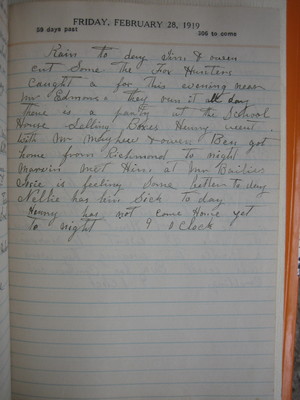 FRIDAY, FEBRUARY 28, 1919
59 days past 306 to come
Rain to day Jim & owen
cut Some The Fox Hunters
Caught a fox This evening near
Mr Edmons They run it all day
there is a party at the School
House Selling Boxes Henry went
With Mr Mayhew & owen Ben got
home from Richmond to night
Marvin met Him at Mr Bailies
Irie is feeling Some better to day
Nellie has bin Sick To day
Henry has not come Home yet
to night 9 O Clock